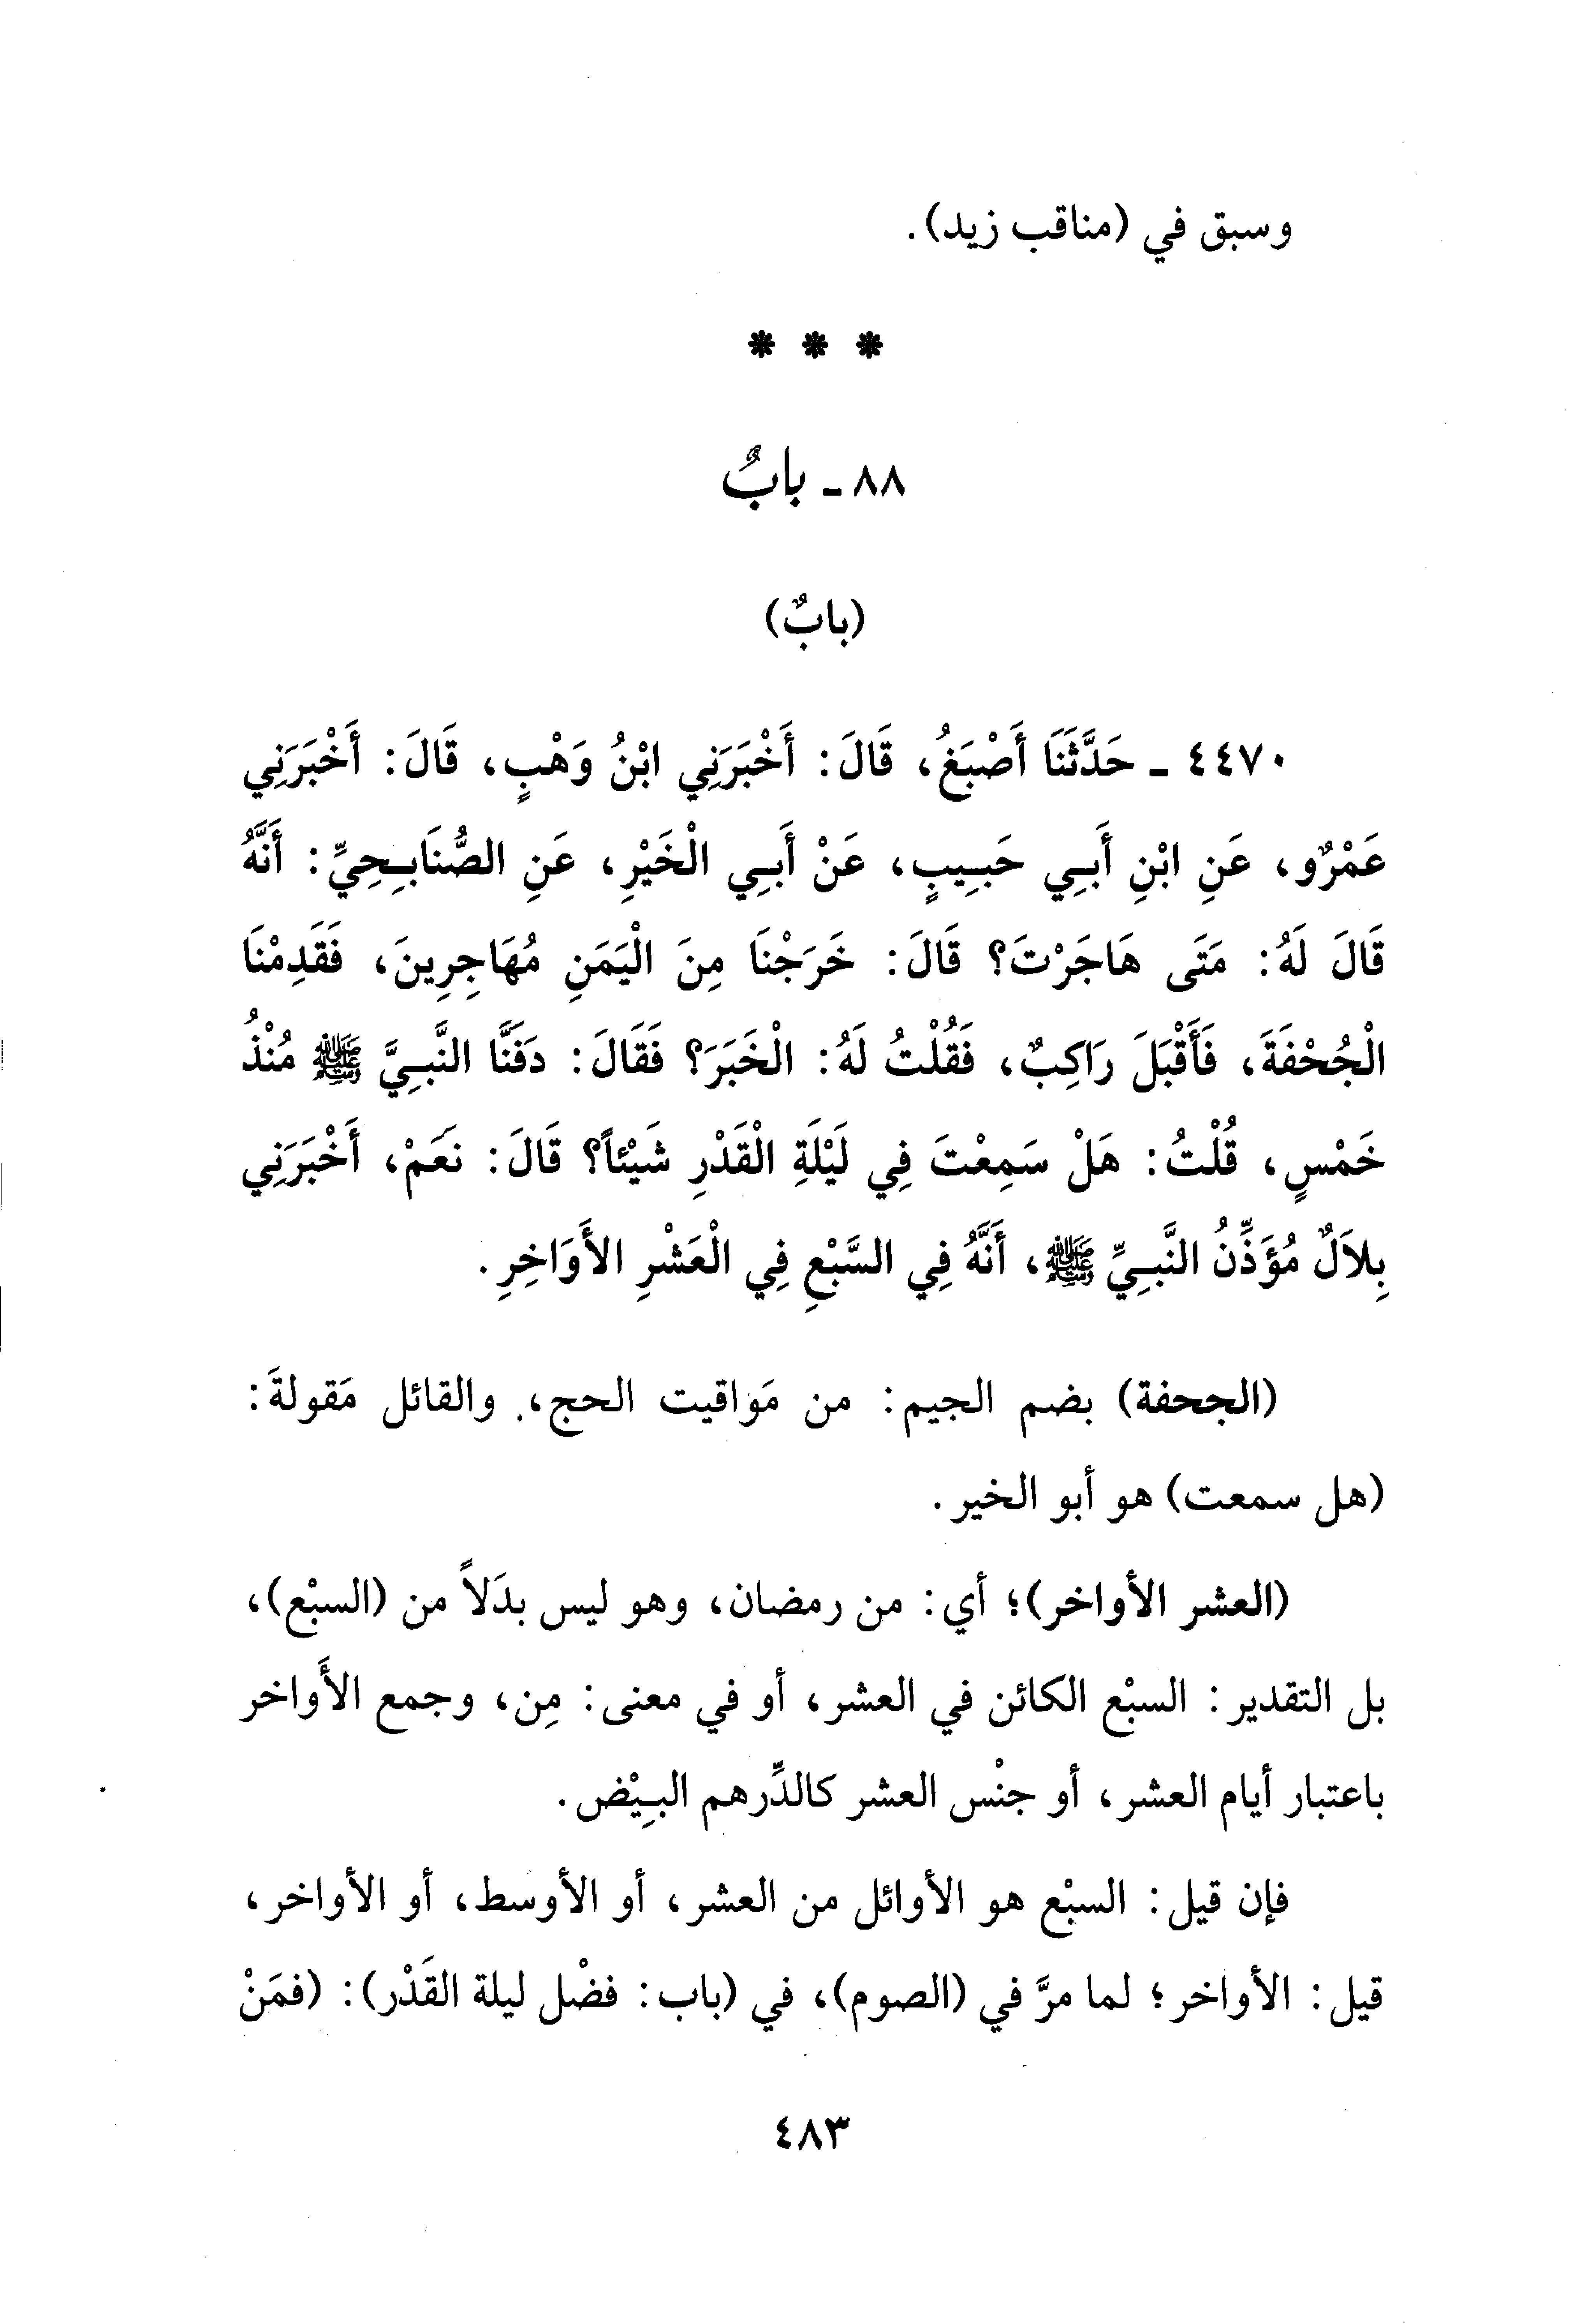 وسبق في (مناقب زيد).
* * *
٨٨ - بابٌ
(بابٌ)
٤٤٧٠ - حَدَّثَنَا أَصْبَغُ، قَالَ: أَخْبَرَنِي ابْنُ وَهْبٍ، قَالَ: أَخْبَرَنِي
عَمْرٌو، عَنِ ابْنِ أَبِي حَبِيبٍ، عَنْ أَبِي الْخَيْرِ، عَنِ الصُّنَابِحِيِّ: أَنَّهُ
قَالَ لَهُ: مَتَى هَاجَرْتَ؟ قَالَ: خَرَجْنَا مِنَ الْيَمَنِ مُهَاجِرِينَ، فَقَدِمْنَا
الْجُحْفَةَ، فَأَقْبَلَ رَاكِبٌ، فَقُلْتُ لَهُ: الْخَبَرَ؟ فَقَالَ: دَفَنَّا النَّبِيَّ ﷺ مُنْذُ
خَمْسٍ، قُلْتُ: هَلْ سَمِعْتَ فِي لَيْلَةِ الْقَدْرِ شَيْئاً؟ قَالَ: نَعَمْ، أَخْبَرَنِي
بِلاَلٌ مُؤَذِّنُ النَّبِيِّ ﷺ، أَنَّهُ فِي السَّبْعِ فِي الْعَشْرِ الأَوَاخِرِ.
(الجحفة) بضم الجيم: من مَواقيت الحج، والقائل مَقولةَ:
(هل سمعت) هو أبو الخير.
(العشر الأواخر)؛ أي: من رمضان، وهو ليس بدَلاً من (السبْع)،
بل التقدير: السبْع الكائن في العشر، أو في معنى: مِن، وجمع الأَواخر
باعتبار أيام العشر، أو جنْس العشر كالدِّرهم البِيْض.
فإن قيل: السبْع هو الأوائل من العشر، أو الأوسط، أو الأواخر،
قيل: الأواخر؛ لما مرَّ في (الصوم)، في (باب: فضْل ليلة القَدْر): (فمَنْ
٤٨٣